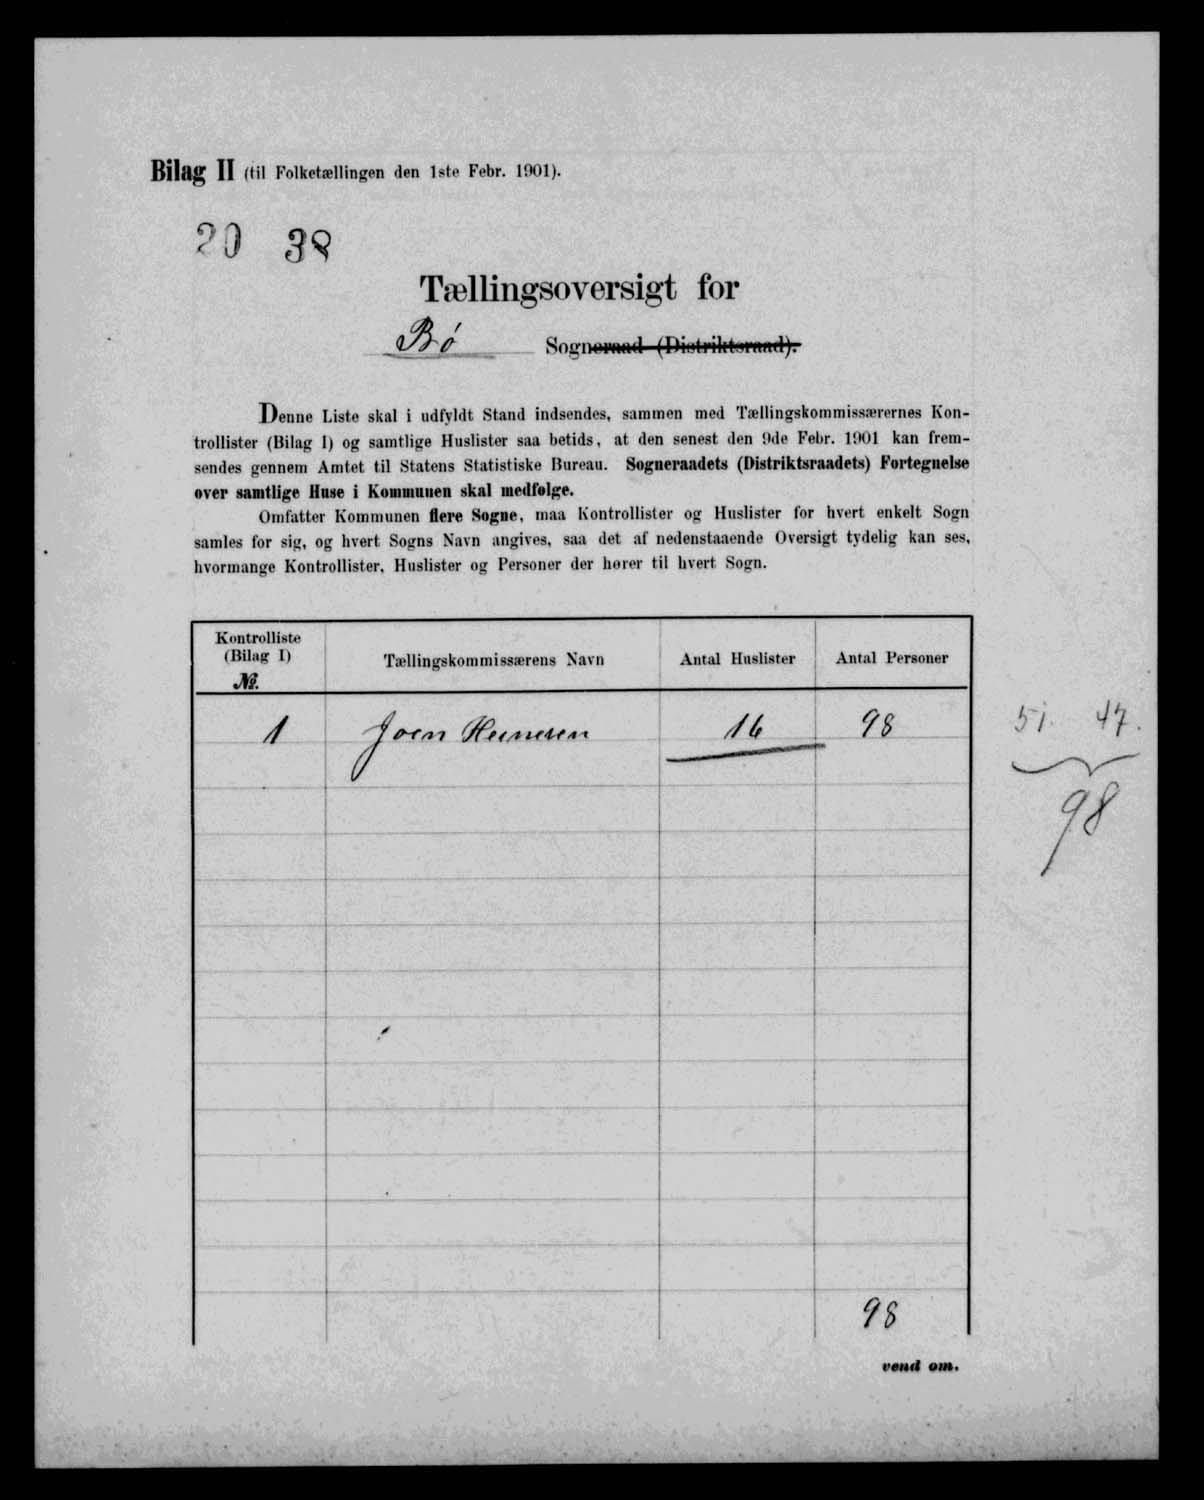 Bilag II (til Folketællingen den 1ste Febr. 1901).
20 38
Tællingsoversigt for
Bø Sogneraad (Distriktsraad).
Denne Liste skal i udfyldt Stand indsendes, sammen med Tællingskommissærernes Kon-
trollister (Bilag I) og samtlige Huslister saa betids, at den senest den 9de Febr. 1901 kan frem-
sendes gennem Amtet til Statens Statistiske Bureau. Sogneraadets (Distriktsraadets) Fortegnelse
over samtlige Huse i Kommunen skal medfølge.
Omfatter Kommunen flere Sogne, maa Kontrollister og Huslister for hvert enkelt Sogn
samles for sig, og hvert Sogns Navn angives, saa det af nedenstaaende Oversigt tydelig kan ses,
hvormange Kontrollister, Huslister og Personer der hører til hvert Sogn.
Kontrolliste
(Bilag I)
No.
Tællingskommissærens Navn
Antal Huslister
Antal Personer
1 Joen Heinesen 16 98
51. 47.
98
98
vend om.